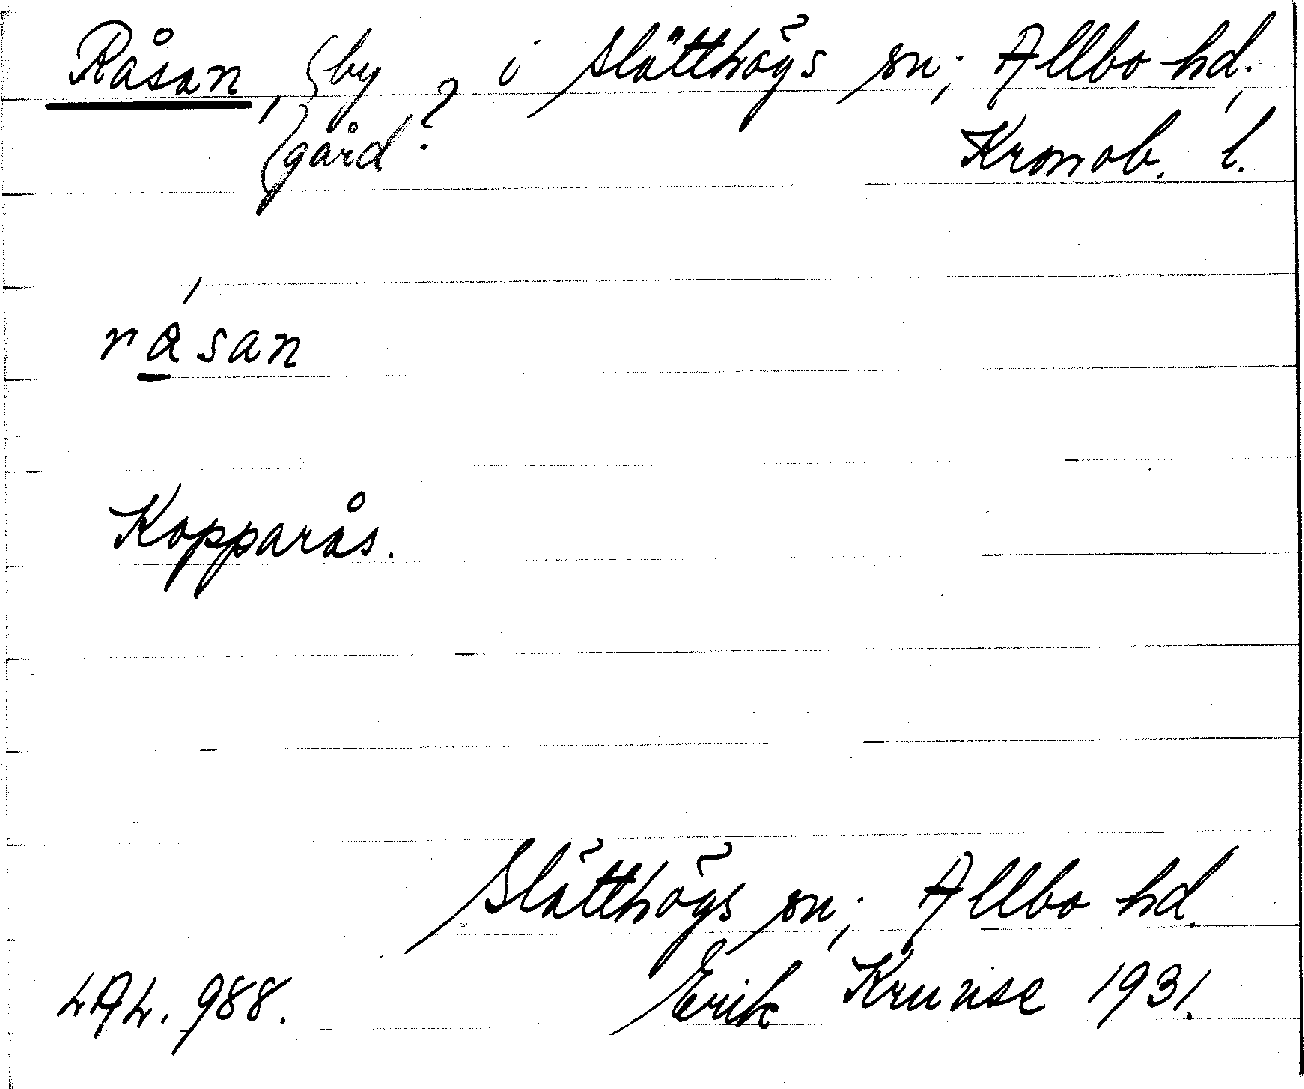 Råsan, {by ? i Slätthögs sn; Allbo hd.,
{gård Kronob. l.
råsan
Kopparås.
Slätthögs sn; Allbo hd.
LAL. 988. Erik Kruuse 1931.